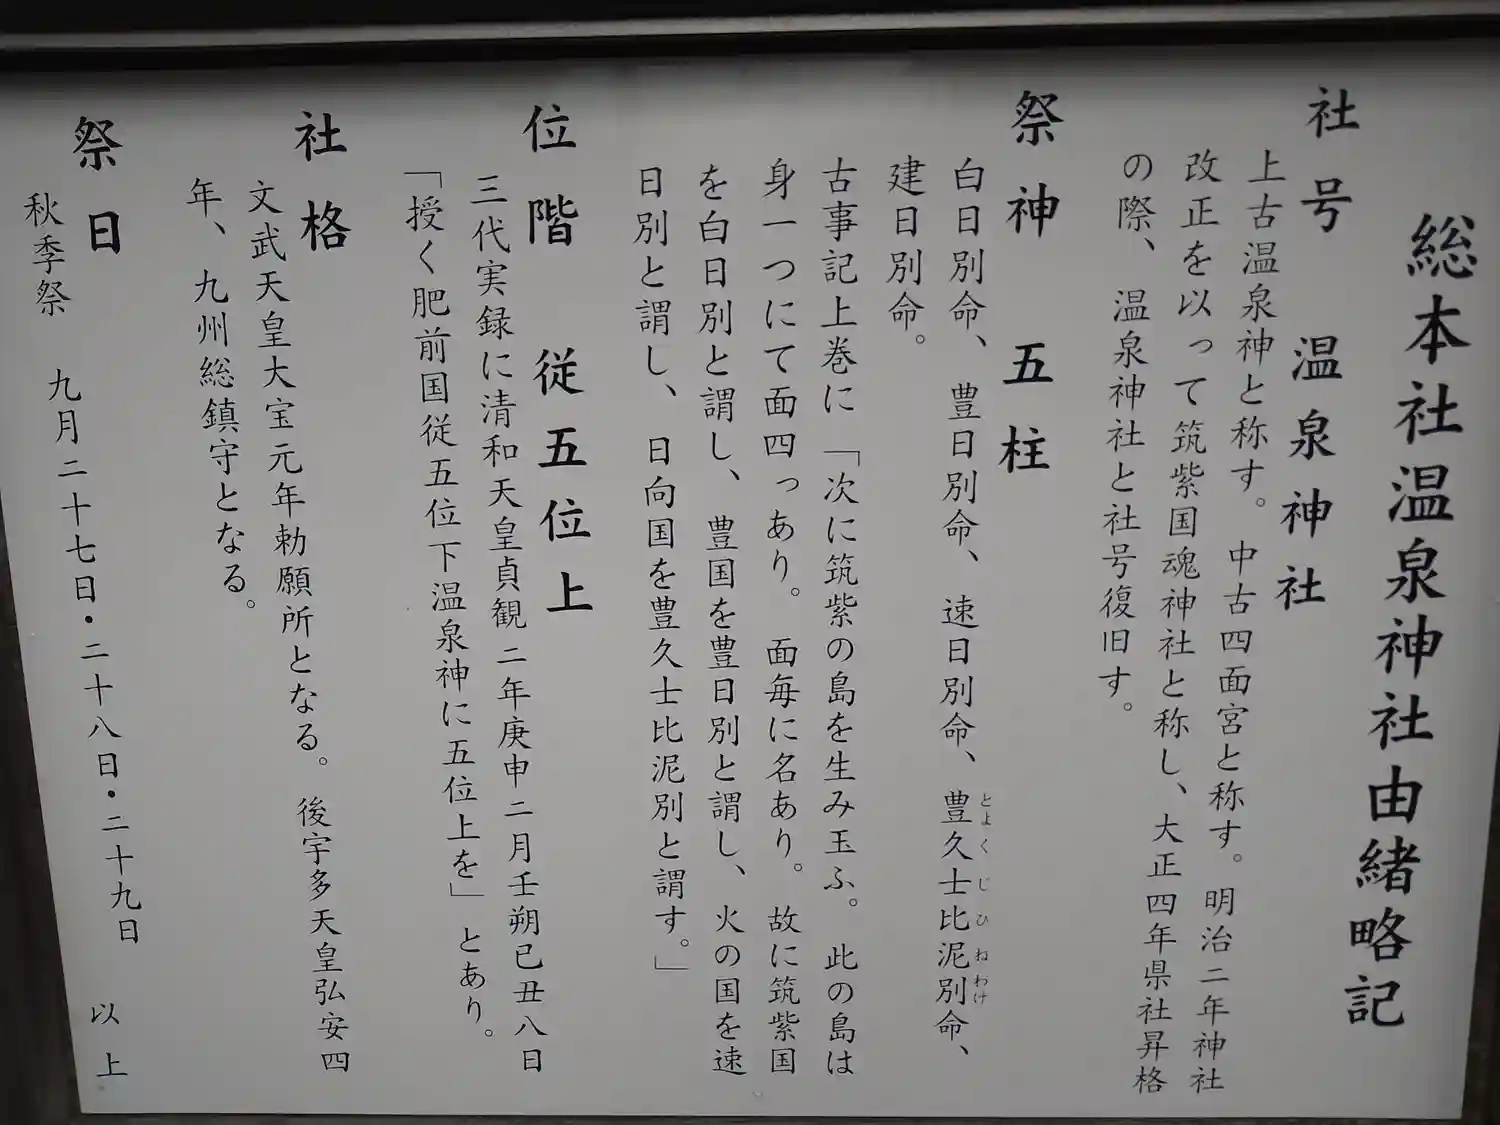 総本社温泉神社由緒略記
社号 温泉神社
上古温泉神と称す。中古四面宮と称す。明治二年神社
改正を以って筑紫国魂神社と称し、大正四年県社昇格
の際、温泉神社と社号復旧す。
祭神 五柱
白日別命、豊日別命、速日別命、豊久士比泥別命、
とよくじひねわけ
建日別命。
古事記上巻に「次に筑紫の島を生み玉ふ。此の島は
身一つにて面四っあり。面毎に名あり。故に筑紫国
を白日別と謂し、豊国を豊日別と謂し、火の国を速
日別と謂し、日向国を豊久士比泥別と謂す。」
位階 従五位上
三代実録に清和天皇貞観二年庚申二月壬朔已丑八日
「授く肥前国従五位下温泉神に五位上を」とあり。
社格
文武天皇大宝元年勅願所となる。後宇多天皇弘安四
年、九州総鎮守となる。
祭日
秋季祭 九月二十七日・二十八日・二十九日
以上